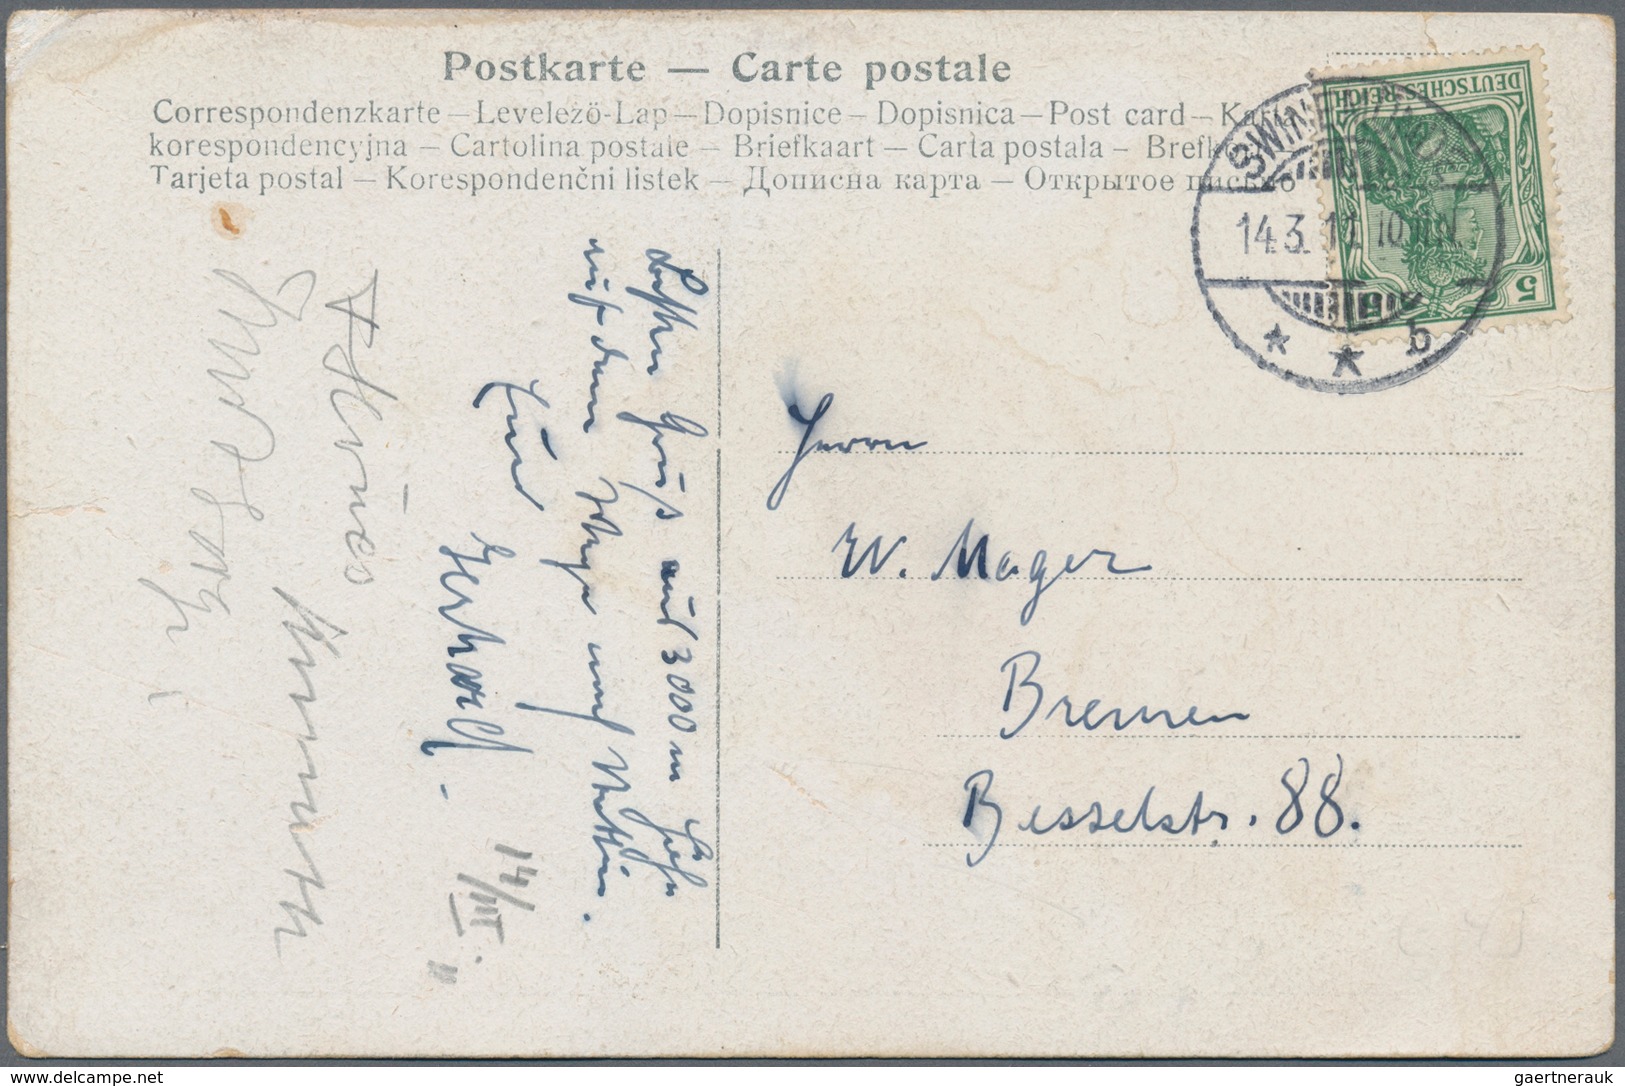 Postkarte — Carte postale
Correspondenzkarte – Levelező-Lap – Dopisnice – Dopisnica – Post card – Karta
korespondencyjna – Cartolina postale – Briefkaart – Carta postala – Brefk
Tarjeta postal – Korespondenční listek – Дописна карта – Открытое письмо
DEUTSCHES REICH
5
5
SWINEMÜNDE
14.3.11. 10
* * b
Besten Gruß aus 3000 m Höhe
auf dem Wege nach Stettin.
Gerhard.
14/III. 11
Herrn
W. Mager
Bremen
Besselstr. 88.
delcampe.net
gaertnerauk